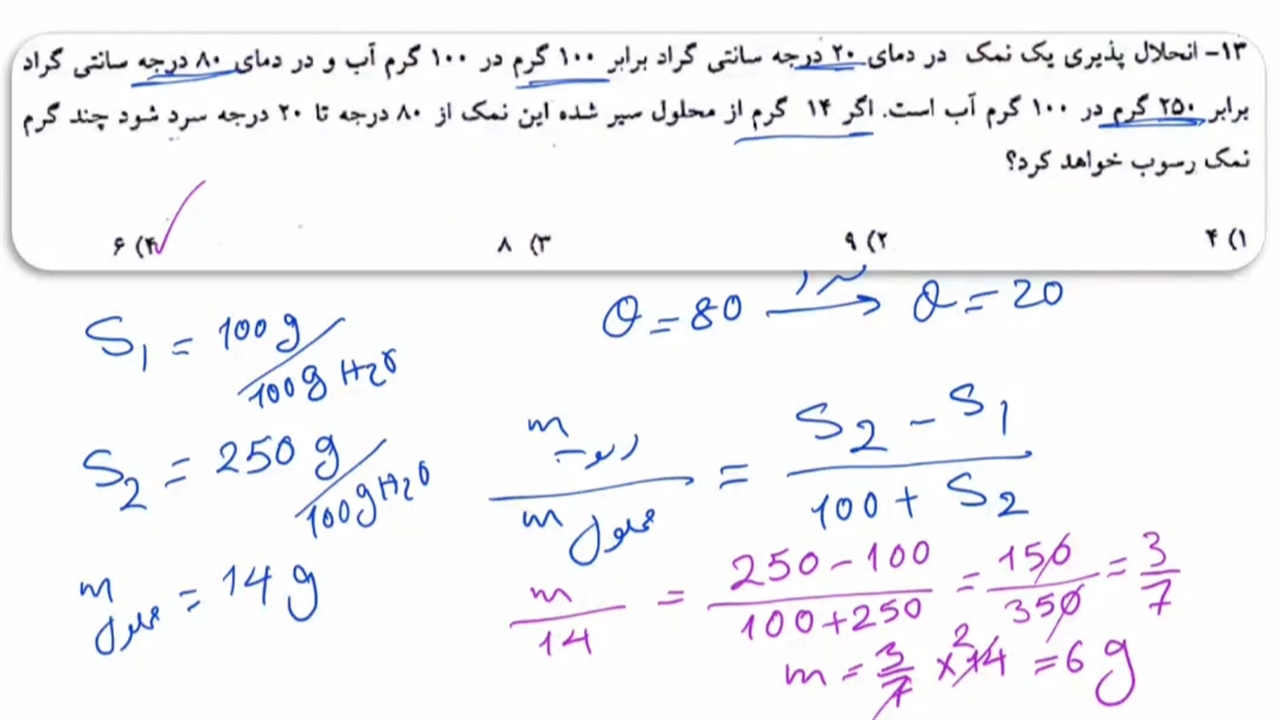 ۱۳- انحلال پذیری یک نمک در دمای ۲۰ درجه سانتی گراد برابر ۱۰۰ گرم در ۱۰۰ گرم آب و در دمای ۸۰ درجه سانتی گراد
برابر ۲۵۰ گرم در ۱۰۰ گرم آب است. اگر ۱۴ گرم از محلول سیر شده این نمک از ۸۰ درجه تا ۲۰ درجه سرد شود چند گرم
نمک رسوب خواهد کرد؟
۱) ۴ ۲) ۹ ۳) ۸ ۴) ۶
θ = 80 → θ = 20
S1 = 100 g / 100 g H2O
S2 = 250 g / 100 g H2O
m محلول = 14 g
m رسوب / m محلول = S2 - S1 / 100 + S2
m / 14 = 250 - 100 / 100 + 250 = 150 / 350 = 3 / 7
m = 3 / 7 × 14 2 = 6 g